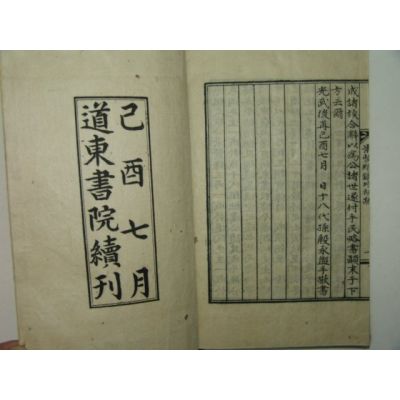 或諸族合辭以爲公諸世遂付手民略書顚末于下
方云爾
光武後再己酉七月 日十八代孫殷永盥手敬書
己酉七月
道東書院續刊